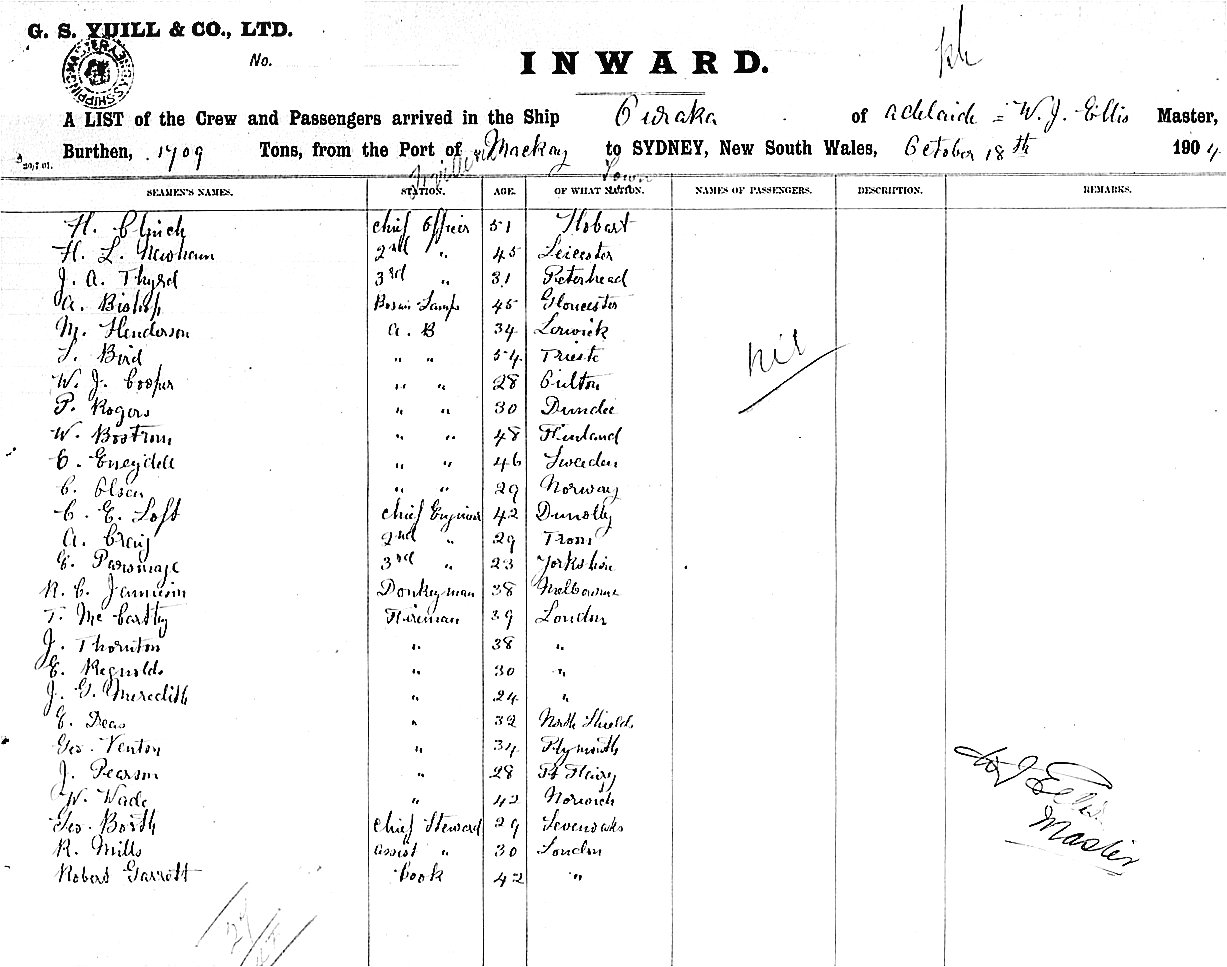 G. S. YUILL & CO., LTD.
No.
INWARD.
A LIST of the Crew and Passengers arrived in the Ship Ouraka of Adelaide = W. J. Ellis Master,
Burthen, 1709 Tons, from the Port of Mackay to SYDNEY, New South Wales, October 18th 1904
Town
SEAMEN'S NAMES. STATION. AGE. OF WHAT NATION. NAMES OF PASSENGERS. DESCRIPTION. REMARKS.
H. Clinch Chief Officer 51 Hobart
H. L. Newham 2nd " 45 Leicester
J. A. Thyrd 3rd " 31 Peterhead
A. Bishop Bosun Lamps 45 Gloucester
M. Henderson A. B 34 Lerwick
Bird " " 54 Trieste
nil
W. J. Cooper " " 28
P. Rogers " " 30 Dundee
W. Bostrom " " 48 Finland
C. " " 46 Sweden
C. Olsen " " 29 Norway
C. E. Loft Chief Engineer 42 Dunolly
A. Craig 2nd " 29 Troon
E. Parsonage 3rd " 23 Yorkshire
R. C. Jamieson Donkeyman 38 Melbourne
T. McCarthy Fireman 39 London
J. Thornton " 38 "
E. Reynolds " 30 "
J. G. Meredith " 24 "
E. Deas " 32 North Shields
Geo. Venton " 34 Plymouth
J. Pearson " 28 Pt Fairy
W. Wade " 42 Norwich
Geo. Booth Chief Steward 29 Sevenoaks
R. Mills Assist " 30 London
Robert Garrott Cook 42 "
W J Ellis
Master